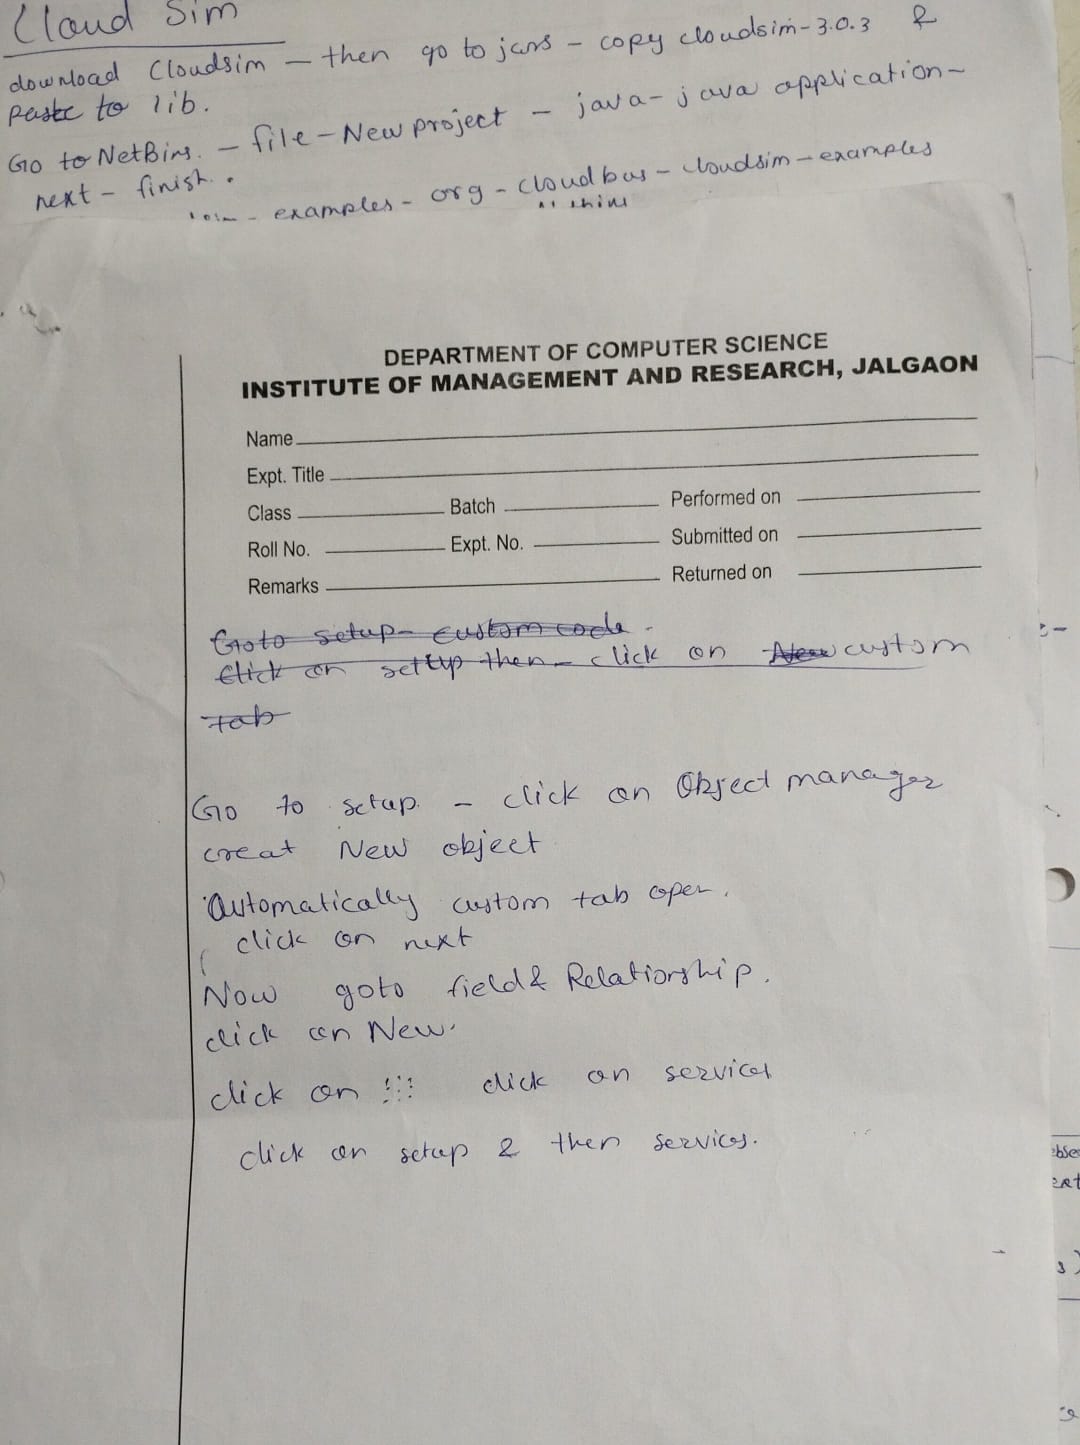 Cloud Sim
download Cloudsim – then go to jars – copy cloudsim-3.0.3 &
paste to lib.
Go to NetBins. – file – New project – java – java application –
next – finish.
examples – org – cloudbus – cloudsim – examples
DEPARTMENT OF COMPUTER SCIENCE
INSTITUTE OF MANAGEMENT AND RESEARCH, JALGAON
Name
Expt. Title
Class Batch Performed on
Roll No. Expt. No. Submitted on
Remarks Returned on
Goto setup – custom code –
Click on settyp then – click on New custom
tab
Go to setup. – click on Object manager
creat New object
Automatically custom tab open.
click on next
Now goto field & Relationship.
click on New.
click on click on services
click on setup & then services.